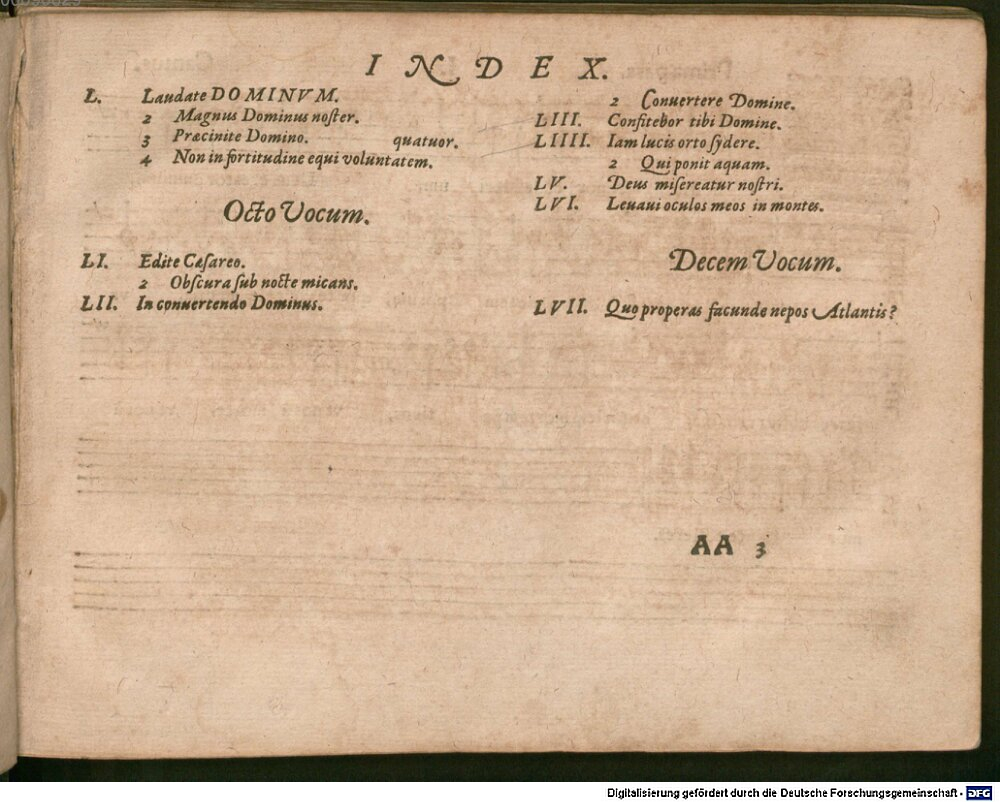 INDEX.
L. Laudate DOMINVM.
2 Magnus Dominus noſter.
3 Præcinite Domino. quatuor.
4 Non in fortitudine equi voluntatem.
Octo Vocum.
LI. Edite Cæſareo.
2 Obſcura ſub nocte micans.
LII. In conuertendo Dominus.
2 Conuertere Domine.
LIII. Confitebor tibi Domine.
LIIII. Iam lucis orto ſydere.
2 Qui ponit aquam.
LV. Deus miſereatur noſtri.
LVI. Leuaui oculos meos in montes.
Decem Vocum.
LVII. Quo properas facunde nepos Atlantis?
AA 3
Digitalisierung gefördert durch die Deutsche Forschungsgemeinschaft - DFG